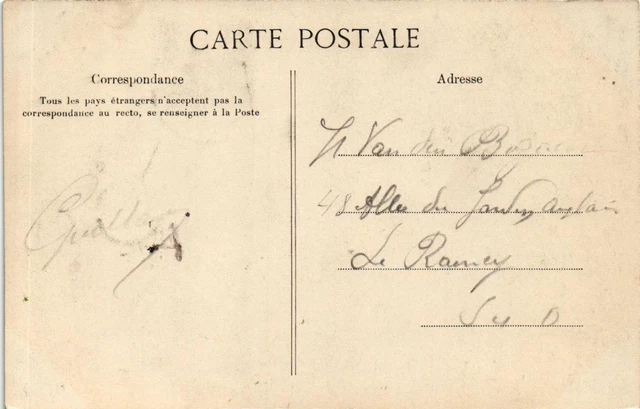 CARTE POSTALE
Correspondance
Tous les pays étrangers n'acceptent pas la
correspondance au recto, se renseigner à la Poste
Adresse
Van den
48 Allée du Jardin Anglais
Le Raincy
S et O